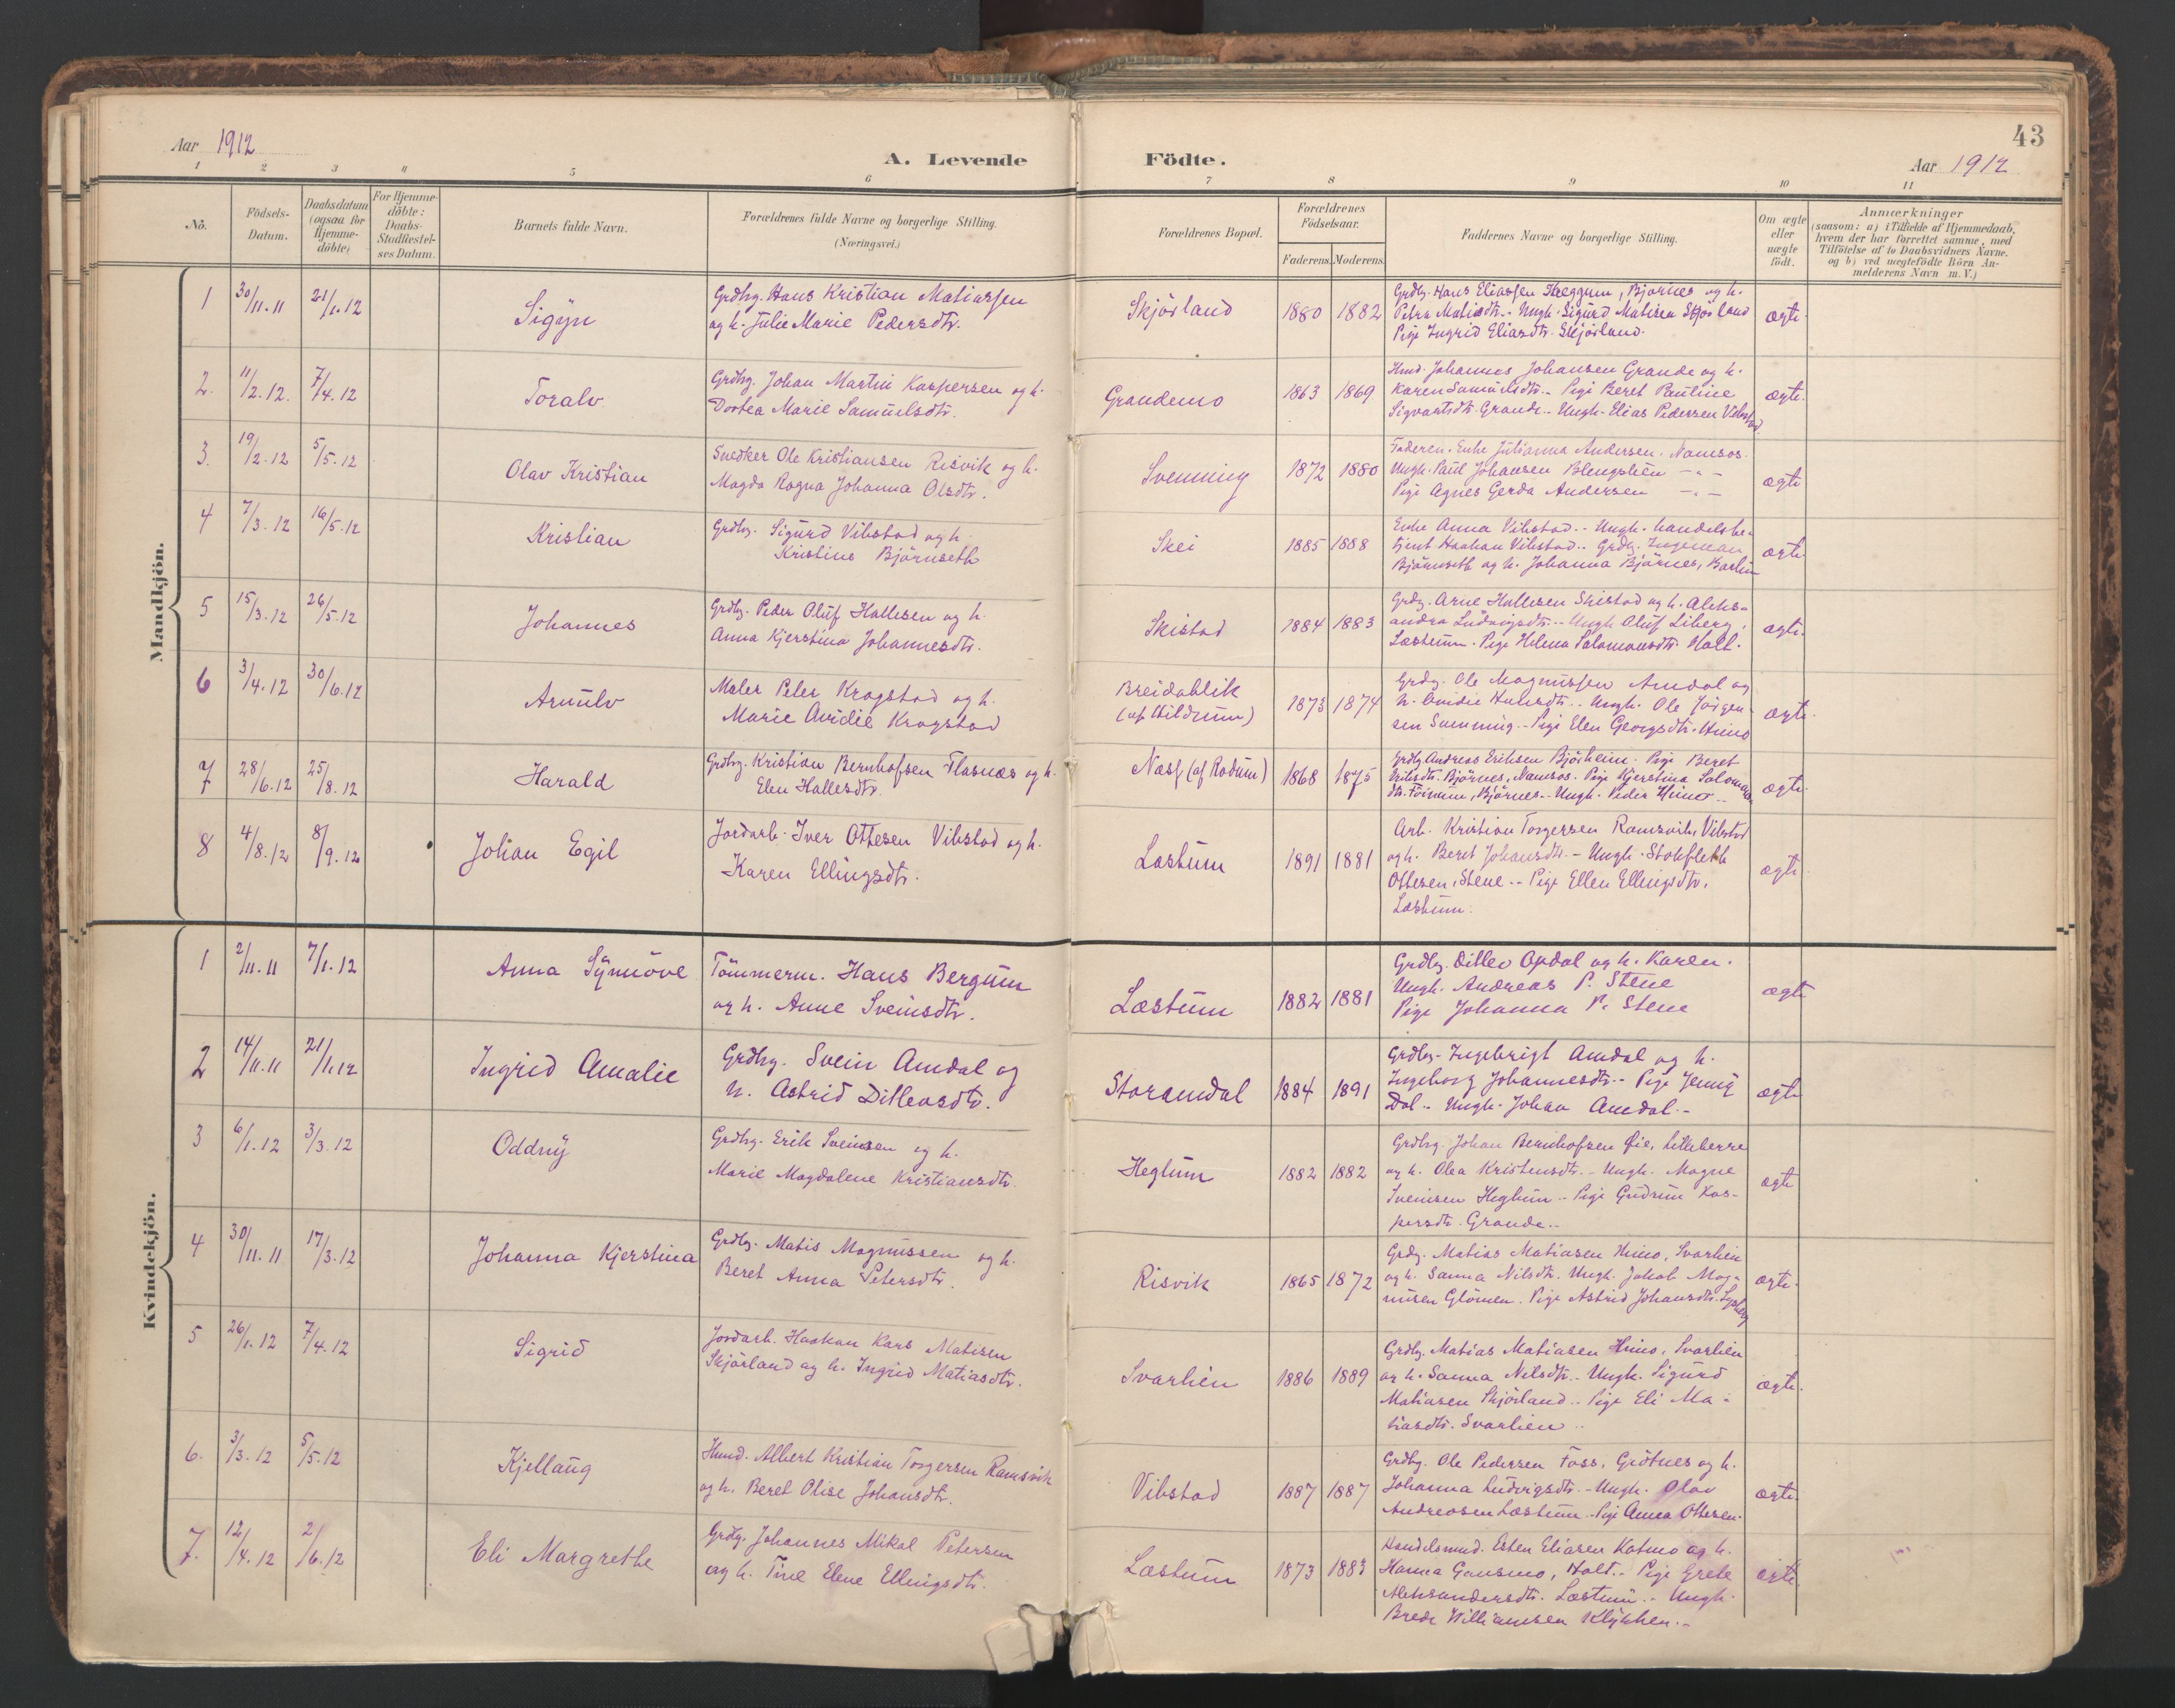 43
Aar 1912
A. Levende Födte.
Aar 1912
1 2 3 4 5 6 7 8 9 10 11
No.
Födsels-Datum.
Daabsdatum (ogsaa for Hjemmedöbte)
For Hjemmedöbte: Daabs-Stadfæstelses Datum.
Barnets fulde Navn.
Forældrenes fulde Navne og borgerlige Stilling.
(Næringsvei.)
Forældrenes Bopæl.
Forældrenes Födselsaar.
Faderens. Moderens.
Faddernes Navne og borgerlige Stilling.
Om ægte eller uægte födt.
Anmærkninger
(saasom: a) i Tilfælde af Hjemmedaab, hvem der har forrettet samme, med Tilföielse af to Daabsvidners Navne, og b) ved uægtefödte Börn Anmelderens Navn m. V.)
Mandkjön.
1 30/11.11 21/1.12 Sigyn
Grdbr. Hans Kristian Matiassen
og h. Julie Marie Pedersdtr.
Skjörland 1880 1882
Grdbr. Hans Eliassen Hæggum, Björnes og h.
Petra Matiasdtr. - Ungk. Sigurd Matisen Skjörland
Pige Ingrid Eliasdtr. Skjörland.
ægte.
2. 11/2.12. 7/4.12 Toralv
Grdbr. Johan Martin Kaspersen og h.
Dortea Marie Samuelsdtr.
Grandemo 1863 1869
Hmd. Johannes Johansen Grande og h.
Karen Samuelsdtr. - Pige Beret Pauline
Sigvartsdtr. Grande. - Ungk. Elias Pedersen Vibstad
ægte.
3. 19/2.12 5/5.12 Olav Kristian
Snedker Ole Kristiansen Risvik og h.
Magda Ragna Johanna Olsdtr.
Svenning 1872 1880
Faderen. Enke Julianna Andersen. Namsos.
Ungk. Paul Johansen Blengslien - " -
Pige Agnes Gerda Andersen - " -
ægte
4 7/3.12 16/5.12 Kristian
Grdbr. Sigurd Vibstad og h.
Kristine Björnseth
Skei 1885 1888
Enke Anna Vibstad. - Ungk. handelsbe-
tjent Haakon Vibstad. - Grdbr. Ingeman
Björnseth og h. Johanna Björnes,
ægte
5 15/3.12 26/5.12 Johannes
Grdbr. Peder Oluf Hallesen og h.
Anna Kjerstina Johannesdtr.
Skistad 1884 1883
Grdbr. Arne Hallesen Skistad og h. Aleks-
andra Ludvigsdtr. - Ungk. Oluf Liberg,
Læstum. Pige Helena Salamonsdtr. Holt.
ægte.
6 3/4.12 30/6.12 Arnulv
Maler Peter Kragstad og h.
Marie Ovidie Kragstad
Breidablik
(af Hildrum) 1873 1874
Grdbr. Ole Magnussen Amdal og
h. Ovidie . Ungk. Ole Jörgen-
sen Svenning. - Pige Elen Georgsdtr. Himo
ægte.
7 28/6.12 25/8.12 Harald
Grdbr. Kristian Bernhofsen Flasnæs og h.
Elen Hallesdtr.
Næss (af Rodum) 1868 1875
Grdbr. Andreas Eriksen Björheim. Pige Beret
Eriksdtr. Björnes, Namsos. Pige Kjerstina Saloman-
dtr. Föinum, Björnes. - Ungk. Peder Himo -
ægte.
8 4/8.12 8/9.12 Johan Egil
Jordarb. Iver Ottesen Vibstad og h.
Karen Ellingsdtr.
Læstum 1891 1881
Arb. Kristian Torgersen Ramsvik, Vibstad
og h. Beret Johansdtr. - Ungk. Stokfleth
Ottesen, Stene. - Pige Ellen Ellingsdtr,
Læstum.
ægte
Kvindekjön.
1 2/11.11 7/1.12 Anna Synnöve
Tömmerm. Hans Bergum
og h. Anne Sveinsdtr.
Læstum 1882 1881
Grdbr. Ditlev Opdal og h. Karen.
Ungk. Andreas P. Stene
Pige Johanna P. Stene
ægte
2 14/11.11 21/1.12 Ingrid Amalie
Grdbr. Svein Amdal og
h. Astrid Ditlevsdtr.
Storamdal 1884 1891
Grdbr. Ingebrigt Amdal og h.
Ingeborg Johannesdtr. - Pige Jenny
Dal. - Ungk. Johan Amdal. -
ægte
3 6/1.12 3/3.12 Oddny
Grdbr. Erik Sveinsen og h.
Marie Magdalene Kristiansdtr.
Heglum 1882 1882
Grdbr. Johan Bernhofsen Öie,
og h. Olea Kristensdtr. - Ungk. Magne
Sveinsen Heglum. - Pige Gudrun Kas-
persdtr. Grande. -
ægte
4 30/11.11 17/3.12 Johanna Kjerstina
Grdbr. Matis Magnussen og h.
Beret Anna Petersdtr.
Risvik 1865 1872
Grdbr. Matias Matiasen Himo, Svarlien
og h. Sanna Nilsdtr. Ungk. Jakob Mag-
nusen Glömen. Pige Astrid Johansdtr.
ægte.
5 26/1.12 7/4.12 Sigrid
Jordarb. Haakon Kars Matisen
Skjörland og h. Ingrid Matiasdtr.
Svarlien 1886 1889
Grdbr. Matias Matiasen Himo, Svarlien
og h. Sanna Nilsdtr. - Ungk. Sigurd
Matiasen Skjörland. - Pige Eli Ma-
tiasdtr. Svarlien. -
ægte.
6. 3/3.12 5/5.12 Kjellaug
Hmd. Albert Kristian Torgersen Ramsvik
og h. Beret Olise Johansdtr.
Vibstad 1887 1887
Grdbr. Ole Pedersen Foss, Grötnes og h.
Johanna Ludvigsdtr. - Ungk. Olav
Andreasen Læstum. - Pige Anna Ottesen.
ægte.
7. 12/4.12 2/6.12 Eli Margrethe
Grdbr. Johannes Mikal Petersen
og h. Tine Elene Ellingsdtr.
Læstum 1873 1883
Handelsmd. Esten Eliasen Katmo og h.
Hanna Gansmo, Holt. - Pige Grete
Aleksandersdtr. Læstum. - Ungk.
Brede Williamsen Klykken. -
ægte